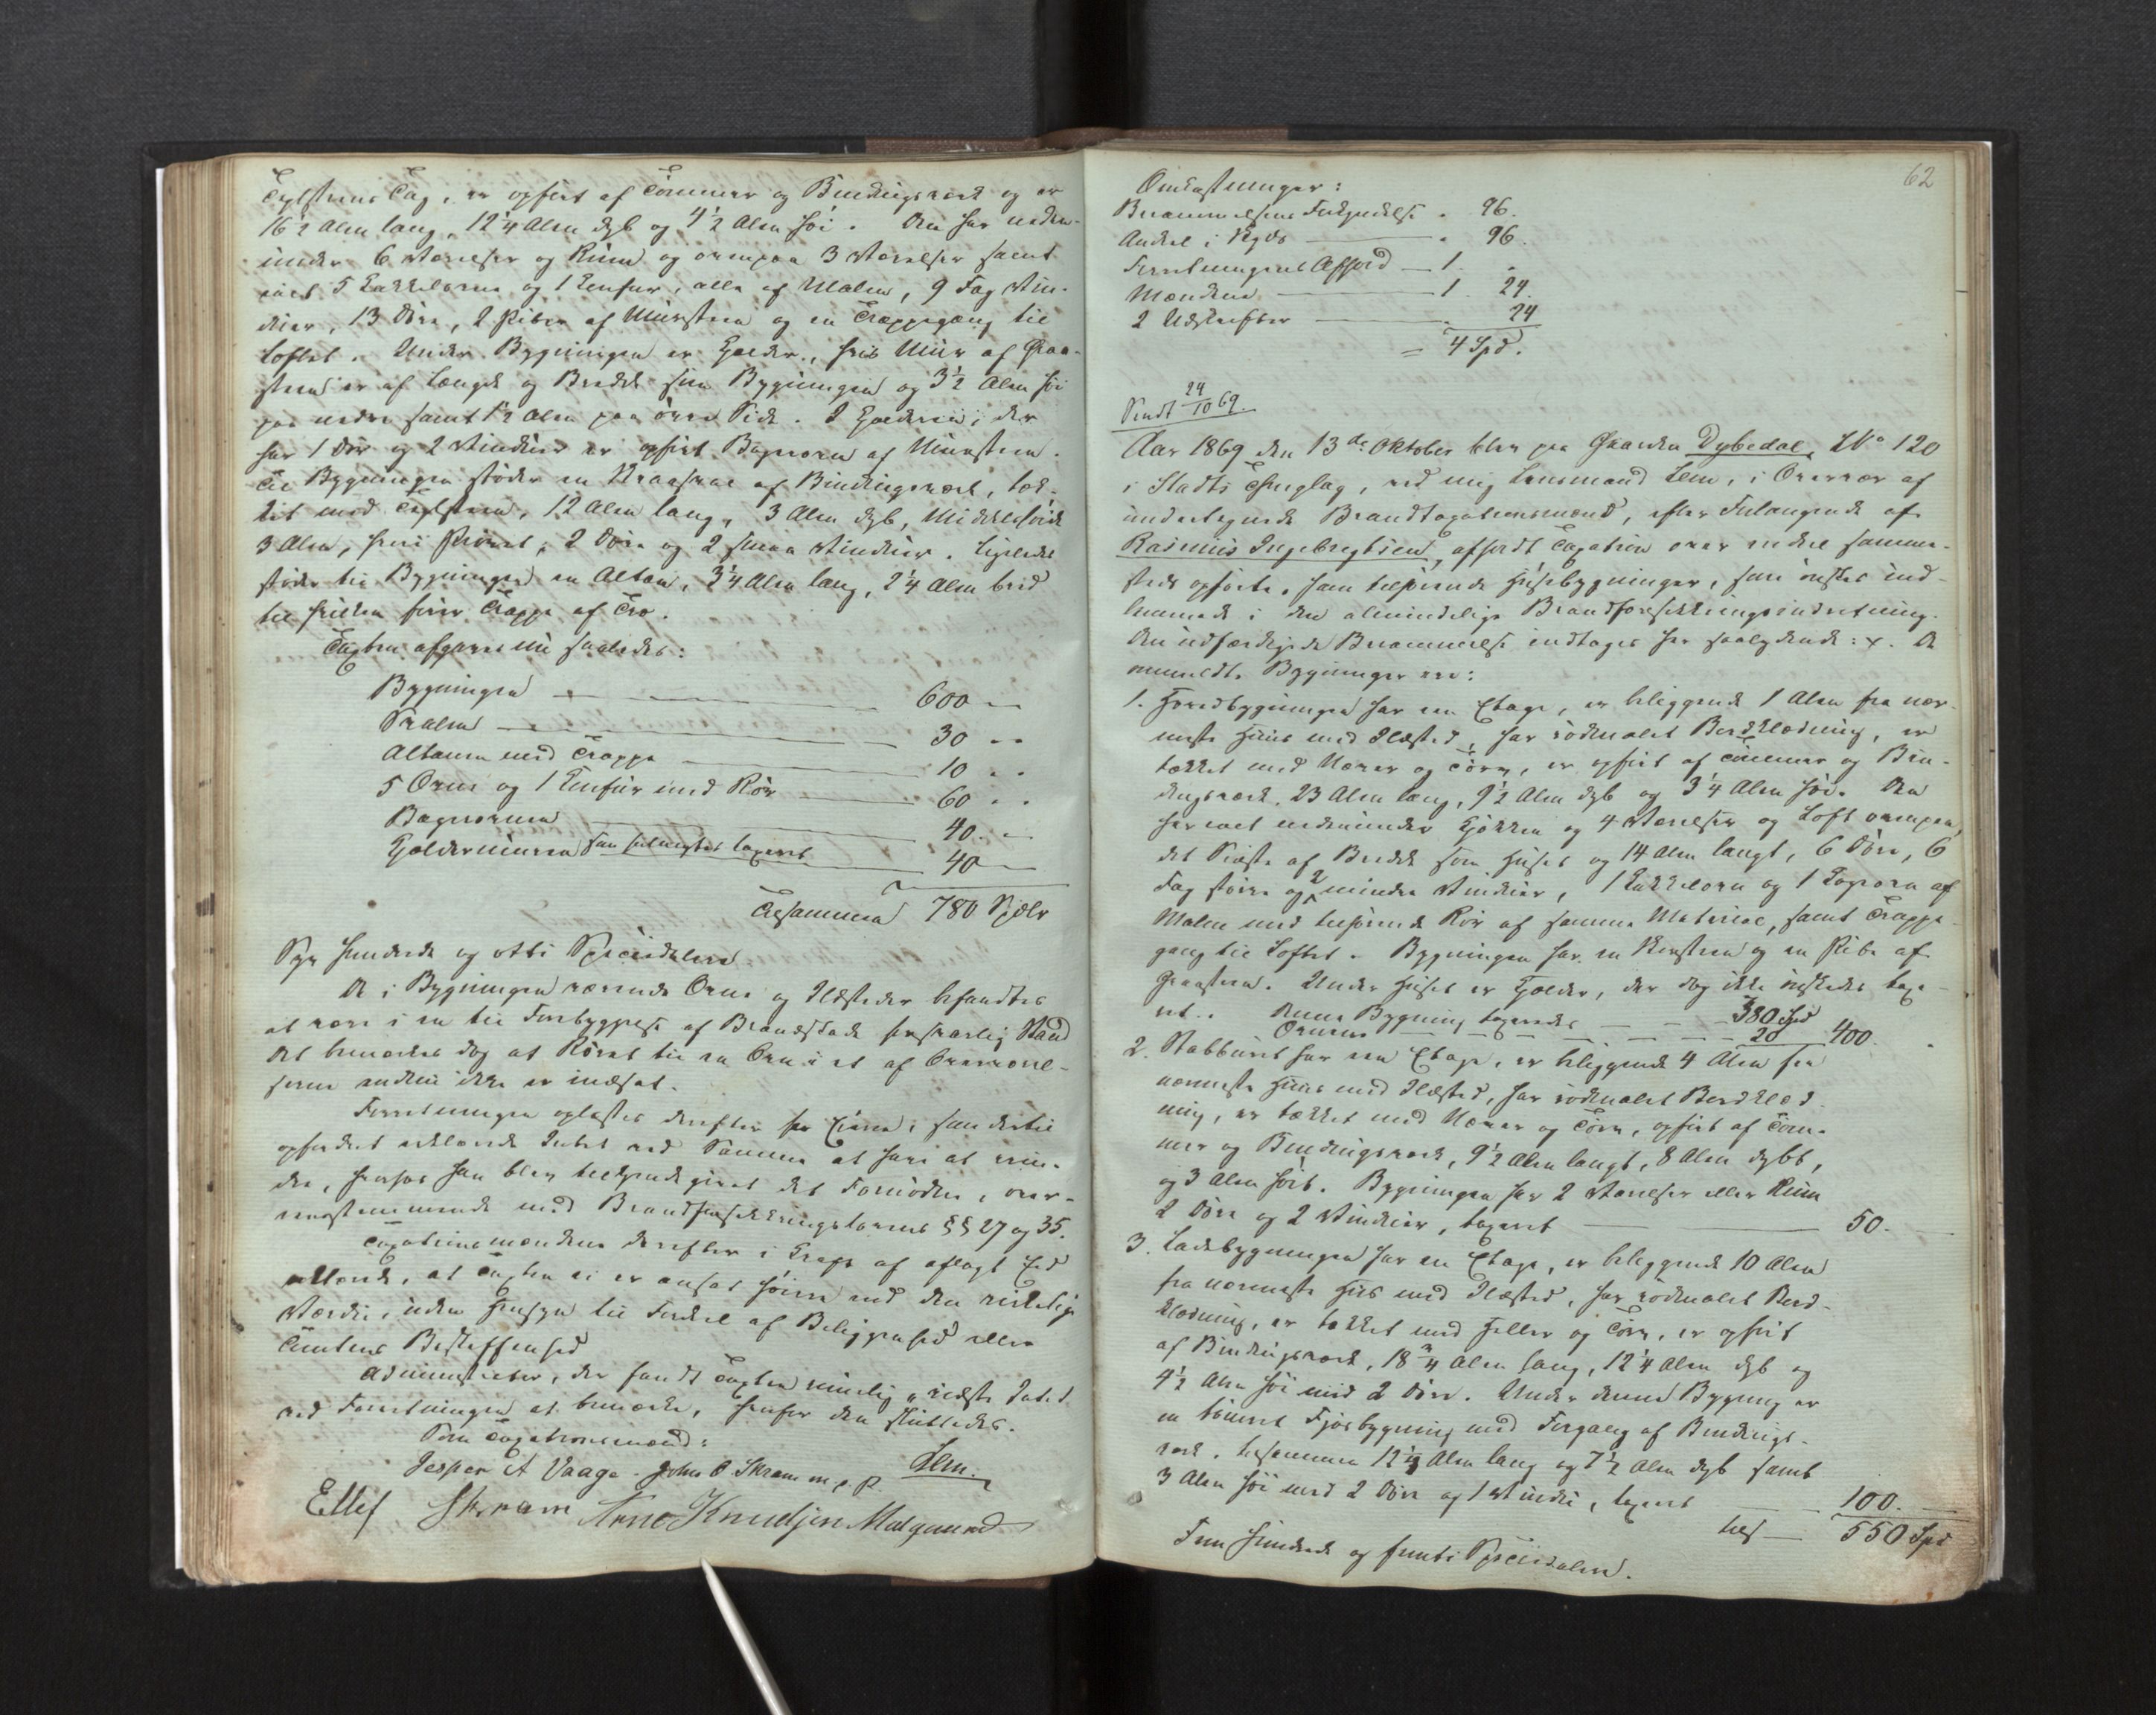 Teglsteens Tag, er opført af Tømmer og Bindingsværk og er
16½ Alen lang, 12¼ Alen dyb og 4½ Alen høi. Den har neden-
under 6 Værelser og Rum og ovenpaa 3 Værelser samt
5 Kakkelovne og 1 Komfur, alle af Malm, 9 Fag Vin-
duer, 13 Døre, 2 Piber af Muursteen og en Trappegang til
Loftet. Under Bygningen er Kjelder, hvis Muur af Graa-
steen er af Længde og Bredde som Bygningen og 3½ Alen høi
paa nedre samt 1½ Alen paa øvre Side. I Kjelderen, der
har 1 Dør og 2 Vinduer er opført Bagerovn af Muursteen.
Til Bygningen støder en Sval af Bindingsværk, tæk-
ket med Teglsteen, 12 Alen lang, 3 Alen dyb, Middelhøide
3 Alen, hvori Privet, 2 Døre og 2 smaa Vinduer. Ligeledes
støder til Bygningen en Altan, 3¼ Alen lang, 2¼ Alen bred
til hvilken fører Trappe af Træ.
Taxten afgaves nu saaledes:
Bygningen 600
Svalen 30
Altanen med Trappe 10
5 Ovne og 1 Komfur med Rør 60
Bagerovnen 40
Kjeldermuren som særskilt taxeret 40
Tilsammen 780 Spdlr
Syv hundrede og otti Speciedaler.
De i Bygningen værende Ovne og Ildsteder befandtes
at være i en til Forebyggelse af Brandskade forsvarlig Stand
Det bemærkes dog at Røret til en Ovn i et af Værel-
serne endnu ikke er indsat.
Forretningen oplæstes derefter for Eieren, som dertil
opfordret erklærede Intet ved Samme at have at erin-
dre, hvorhos han blev tilkjendegivet det Fornødne, over-
eensstemmende med Brandforsikkringslovens §§ 27 og 35.
Taxationsmændene derefter i Kraft af aflagt Eed
erklærede, at Taxten ei er ansat høiere end den virkelige
Værdi, uden Hensyn til Fordeel af Beliggenhed eller
Tomtens Beskaffenhed
Administrator, der fandt Taxten rimelig, vidste Intet
ved Forretningen at bemærke, hvorfor den sluttedes.
Som Taxationsmænd: Lem.
Jesper A Vaage. John O Skram m. p. P.
Ellef Skram Arne Knudsen Malgaund
62
Omkostninger:
Berammelsens Forkyndelse 96.
Andel i Skyds 96.
Forretningens Afhold 1.
Mændene 1. 24.
2 Udskrifter 24
= 4 Spd.
Sendt 24/10 69.
Aar 1869 den 13de Oktober blev paa Gaarden Dybedal, LNo 120
i Stadts Thinglag, ved mig Lensmand Lem, i Overvær af
undertegnede Brandtaxationsmænd, efter Forlangende af
Rasmus Ingebregtsen, afholdt Taxation over endeel sammen-
steds opførte, ham tilhørende Huusebygninger, som ønskes ind-
lemmede i den almindelige Brandforsikkringsindretning.
Den udfærdigede Berammelse indtages her saalydende: x. De
anmeldte Bygninger ere:
1. Hovedbygningen har een Etage, er beliggende 1 Alen fra nær-
meste Huus med Ildsted, har rødmalet Bordklædning, er
tækket med Næver og Tørv, er opført af Tømmer og Bin-
dingsværk, 23 Alen lang, 9½ Alen dyb og 3¼ Alen høi. Den
har nedenunder Kjøkken og 4 Værelser og Loft ovenpaa
det Meste af Bredde som Huset og 14 Alen langt, 6 Døre, 6
Fag større og 2 mindre Vinduer, 1 Kakkelovn og 1 Kogeovn af
Malm med tilhørende Rør af samme Materiale, samt Trappe-
gang til Loftet. Bygningen har en Skorsteen og en Pibe af
Graasteen. Under Huset er Kjelder, der dog ikke ønskedes taxe-
ret. Denne Bygning taxeredes 380 Spd
Ovnene 20 400.
2. Stabburet har een Etage, er beliggende 4 Alen fra
nærmeste Huus med Ildsted, har rødmalet Bordklæd-
ning, er tækket med Næver og Tørv, opført af Tøm-
mer og Bindingsværk, 9½ Alen langt, 8 Alen dybt,
og 3 Alen høit. Bygningen har 2 Værelser eller Rum
2 Døre og 2 Vinduer, taxeret 50.
3. Ladebygningen har en Etage, er beliggende 10 Alen
fra nærmeste Huus med Ildsted, har rødmalet Bord-
klædning, er tækket med Heller og Tørv, er opført
af Bindingsværk, 18¾ Alen lang, 12¼ Alen dyb og
4½ Alen høi med 2 Døre. Under denne Bygning er
en tømret Fjøsbygning med Forgang af Bindings-
værk, tilsammen 12¼ Alen lang og 7½ Alen dyb samt
3 Alen høi med 2 Døre og 1 Vindu, taxeret 100.
tils 550 Spd
Fem hundrede og femti Speciedaler.